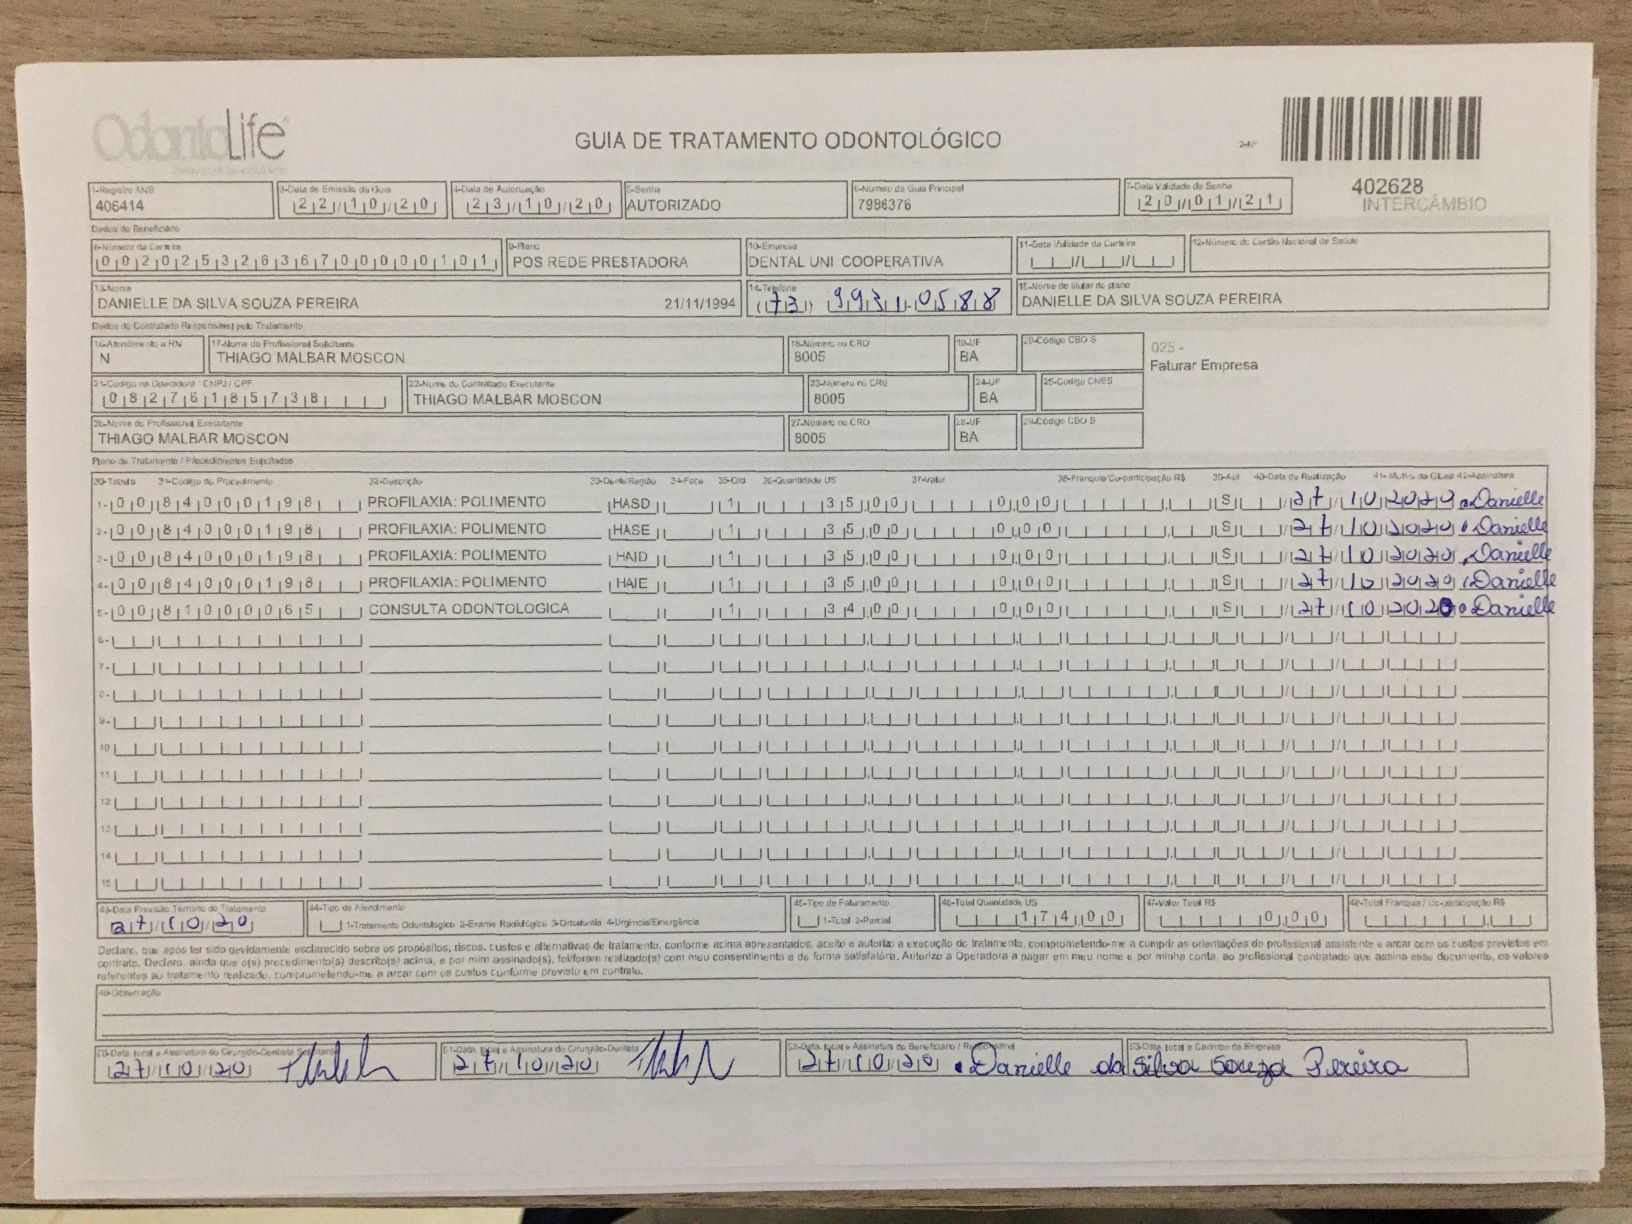 OdontoLife
GUIA DE TRATAMENTO ODONTOLÓGICO
2-Nº
402628
INTERCÂMBIO
1-Registro ANS 3-Data de Emissão da Guia 4-Data de Autorização 5-Senha 6-Número da Guia Principal 7-Data Validade da Senha
406414 22/10/20 23/10/20 AUTORIZADO 7986376 20/01/21
Dados do Beneficiário
8-Número da Carteira 9-Plano 10-Empresa 11-Data Validade da Carteira 12-Número do Cartão Nacional de Saúde
00202532636700000101 POS REDE PRESTADORA DENTAL UNI COOPERATIVA
13-Nome 14-Telefone 15-Nome do titular do plano
DANIELLE DA SILVA SOUZA PEREIRA 21/11/1994 (73) 9931-0588 DANIELLE DA SILVA SOUZA PEREIRA
Dados do Contratado Responsável pelo Tratamento
16-Atendimento a RN 17-Nome do Profissional Solicitante 18-Número no CRO 19-UF 20-Código CBO S
N THIAGO MALBAR MOSCON 8005 BA
025 -
Faturar Empresa
21-Código na Operadora / CNPJ / CPF 22-Nome do Contratado Executante 23-Número no CRO 24-UF 25-Código CNES
08276185738 THIAGO MALBAR MOSCON 8005 BA
26-Nome do Profissional Executante 27-Número no CRO 28-UF 29-Código CBO S
THIAGO MALBAR MOSCON 8005 BA
Plano de Tratamento / Procedimentos Solicitados
30-Tabela 31-Código do Procedimento 32-Descrição 33-Dente/Região 34-Face 35-Qtd 36-Quantidade US 37-Valor 38-Franquia/Co-participação R$ 39-Aut 40-Data de Realização 41-Motivo da Glosa 42-Assinatura
1- 00 84000198 PROFILAXIA: POLIMENTO HASD 1 35,00 0,00 S 27/10/2020 Danielle
2- 00 84000198 PROFILAXIA: POLIMENTO HASE 1 35,00 0,00 S 27/10/2020 Danielle
3- 00 84000198 PROFILAXIA: POLIMENTO HAID 1 35,00 0,00 S 27/10/2020 Danielle
4- 00 84000198 PROFILAXIA: POLIMENTO HAIE 1 35,00 0,00 S 27/10/2020 Danielle
5- 00 81000065 CONSULTA ODONTOLOGICA 1 34,00 0,00 S 27/10/2020 Danielle
6-
7-
8-
9-
10
11
12
13
14
15
43-Data Previsão Término do Tratamento 44-Tipo de Atendimento 45-Tipo de Faturamento 46-Total Quantidade US 47-Valor Total R$ 48-Total Franquia / Co-participação R$
27/10/20 1-Tratamento Odontológico 2-Exame Radiológico 3-Ortodontia 4-Urgência/Emergência 1-Total 2-Parcial 174,00 0,00
Declaro, que após ter sido devidamente esclarecido sobre os propósitos, riscos, custos e alternativas de tratamento, conforme acima apresentados, aceito e autorizo a execução do tratamento, comprometendo-me a cumprir as orientações do profissional assistente e arcar com os custos previstos em
contrato. Declaro, ainda que o(s) procedimento(s) descrito(s) acima, e por mim assinado(s), foi/foram realizado(s) com meu consentimento e de forma satisfatória. Autorizo a Operadora a pagar em meu nome e por minha conta, ao profissional contratado que assina esse documento, os valores
referentes ao tratamento realizado, comprometendo-me a arcar com os custos conforme previsto em contrato.
49-Observação
50-Data, local e Assinatura do Cirurgião-Dentista Solicitante 51-Data, local e Assinatura do Cirurgião-Dentista 52-Data, local e Assinatura do Beneficiário / Responsável 53-Data, local e Carimbo da Empresa
27/10/20 27/10/20 27/10/20 Danielle da Silva Souza Pereira